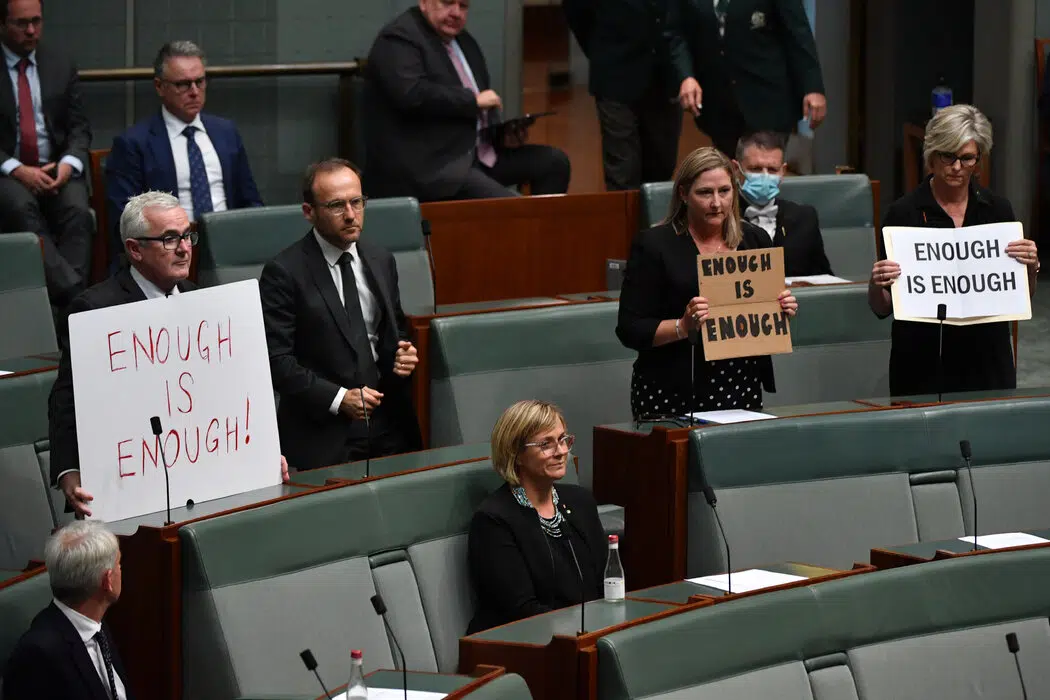 ENOUGH
IS
ENOUGH!
ENOUGH
IS
ENOUGH
ENOUGH
IS ENOUGH